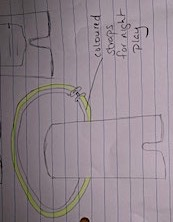 coloured
straps
for night
play